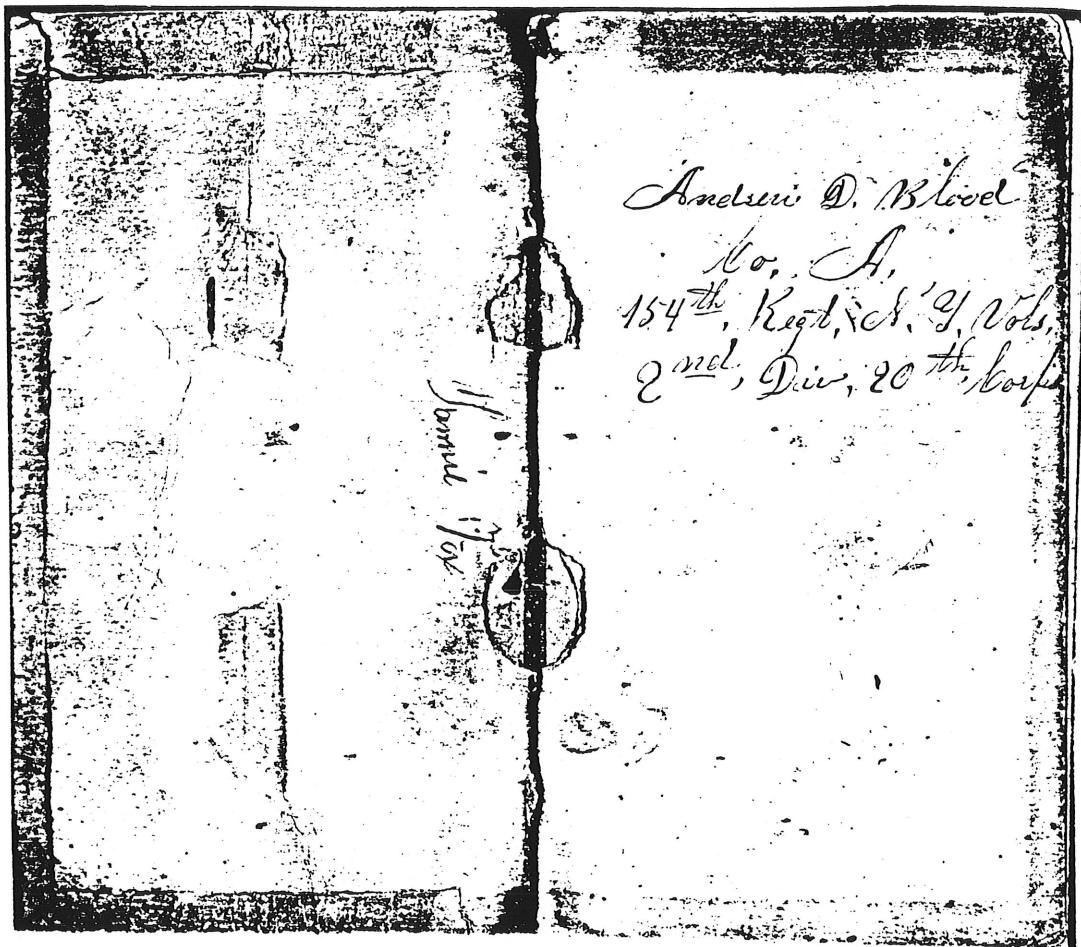 Andrew D. Blood
Co, A,
154th, Regt, N. Y, Vols,
2nd, Div, 20th, Corps